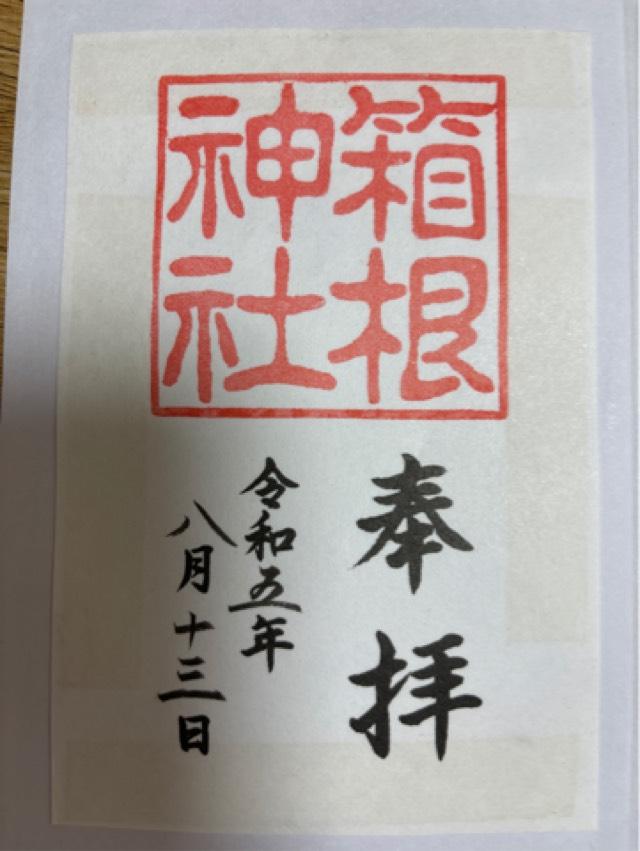 箱根
神社
奉拝
令和五年
八月十三日